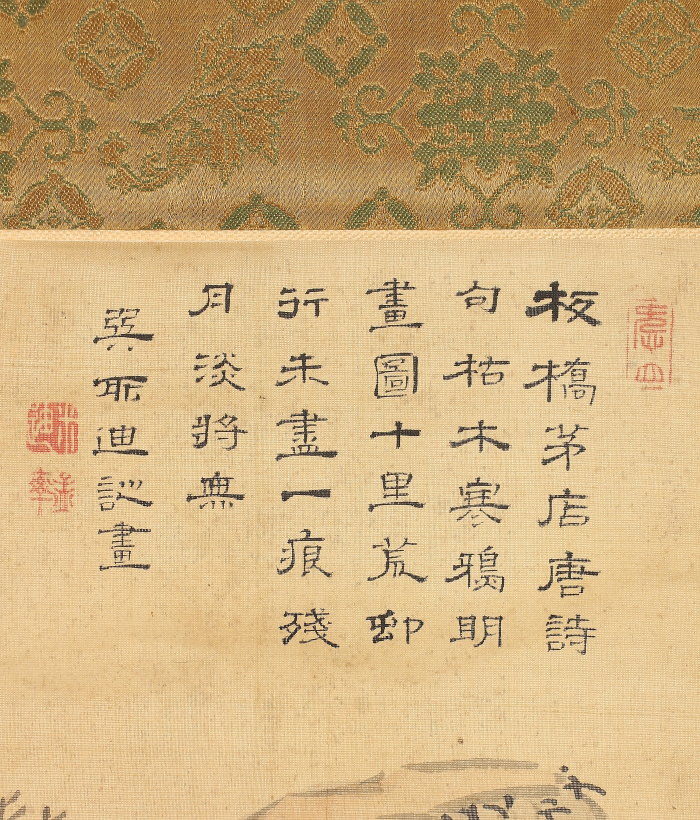 板橋茅店唐詩
句枯木寒鴉明
畫圖十里荒邨
行未盡一痕殘
月淡將無
巽迪訓畫